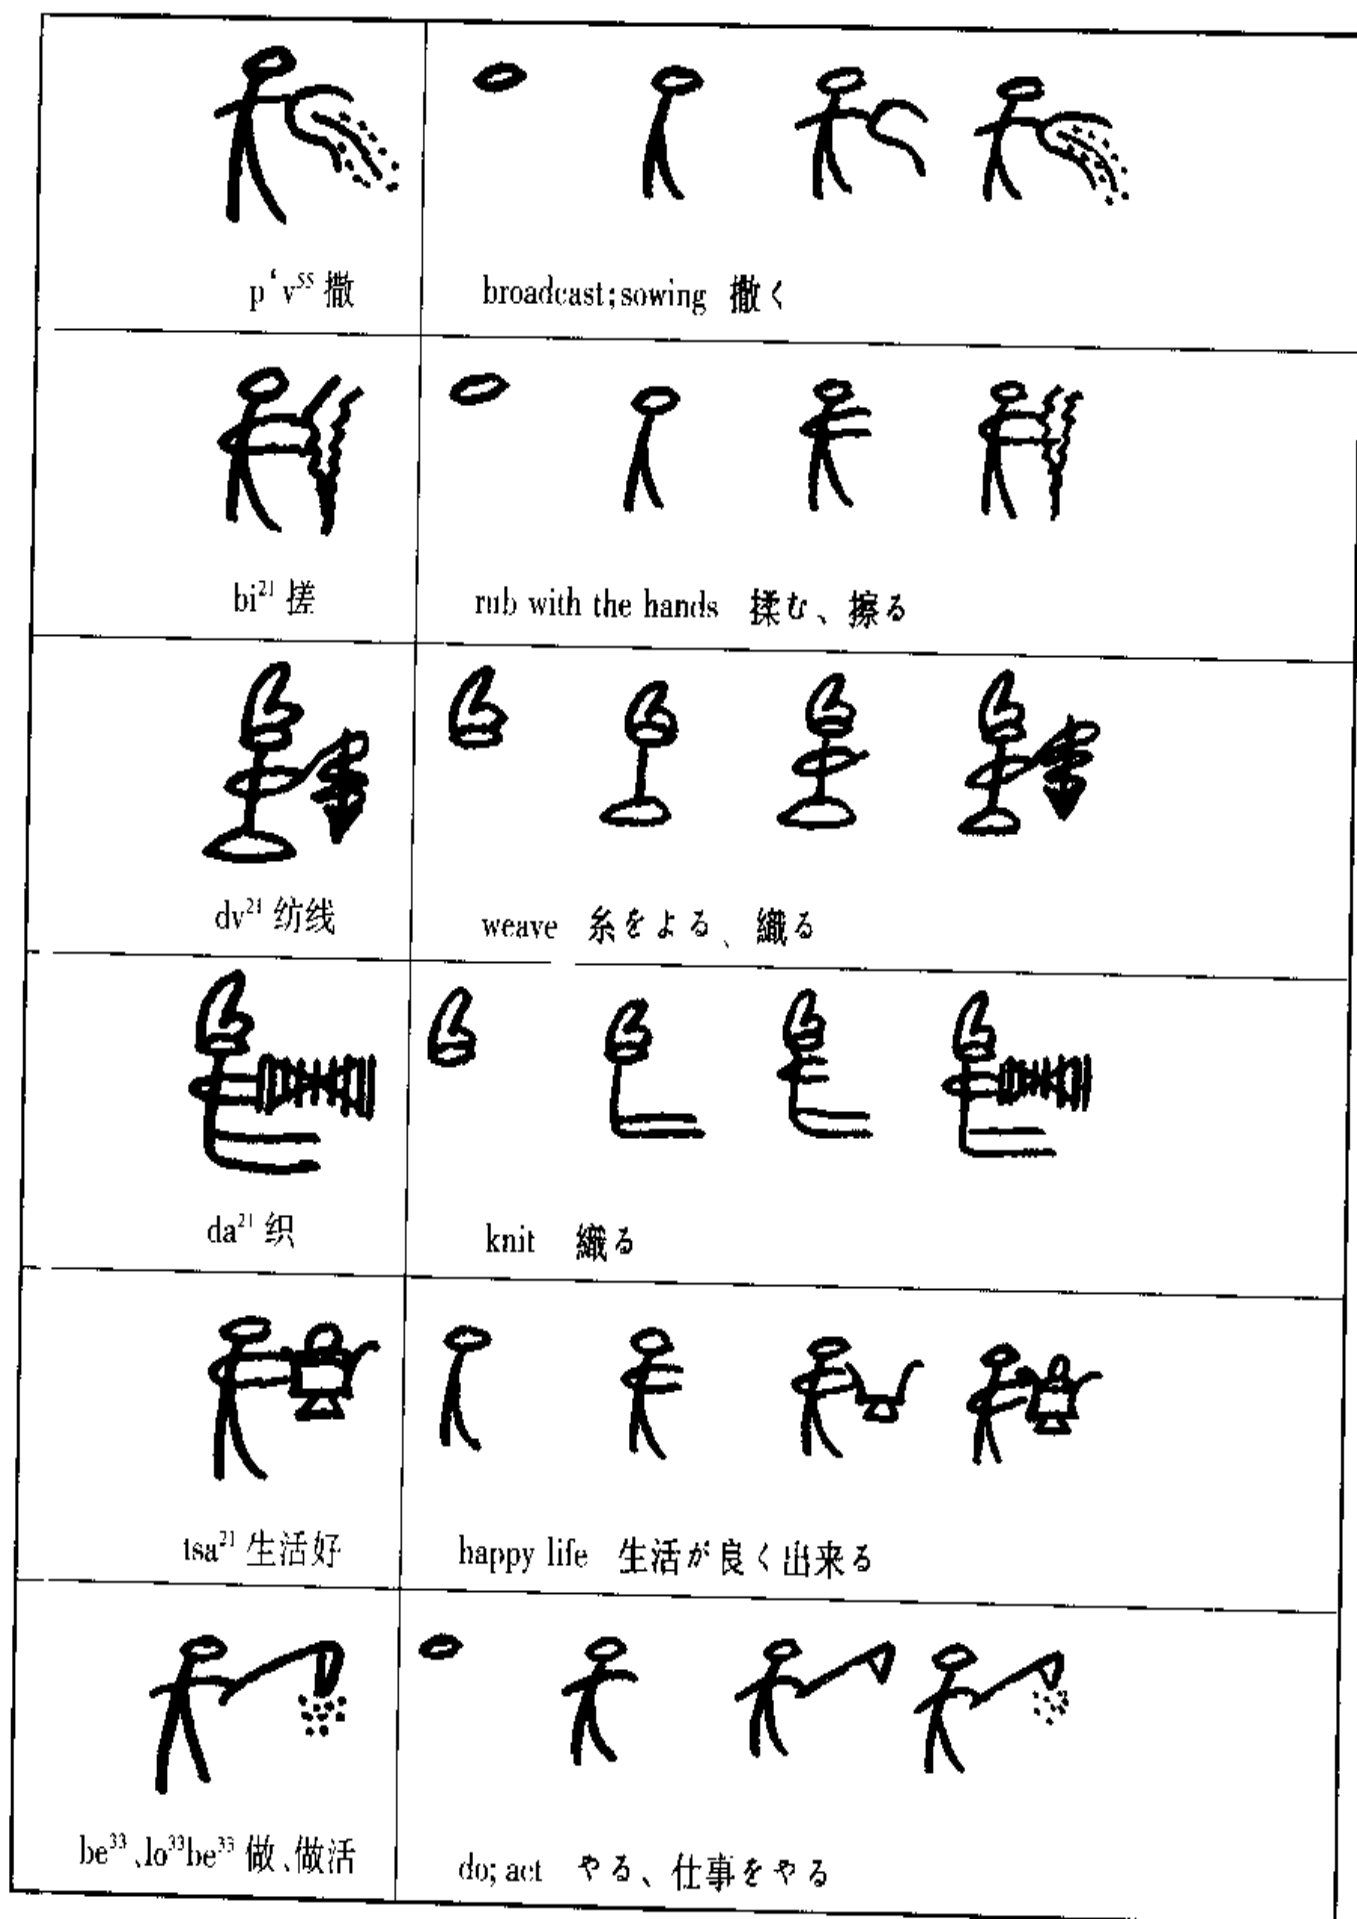 pʻv⁵⁵ 撒
broadcast;sowing 撒く
bi²¹ 搓
rub with the hands 揉む、擦る
dv²¹ 纺线
weave 糸をよる、織る
da²¹ 织
knit 織る
tsa²¹ 生活好
happy life 生活が良く出来る
be³³、lo³³be³³ 做、做活
do; act やる、仕事をやる